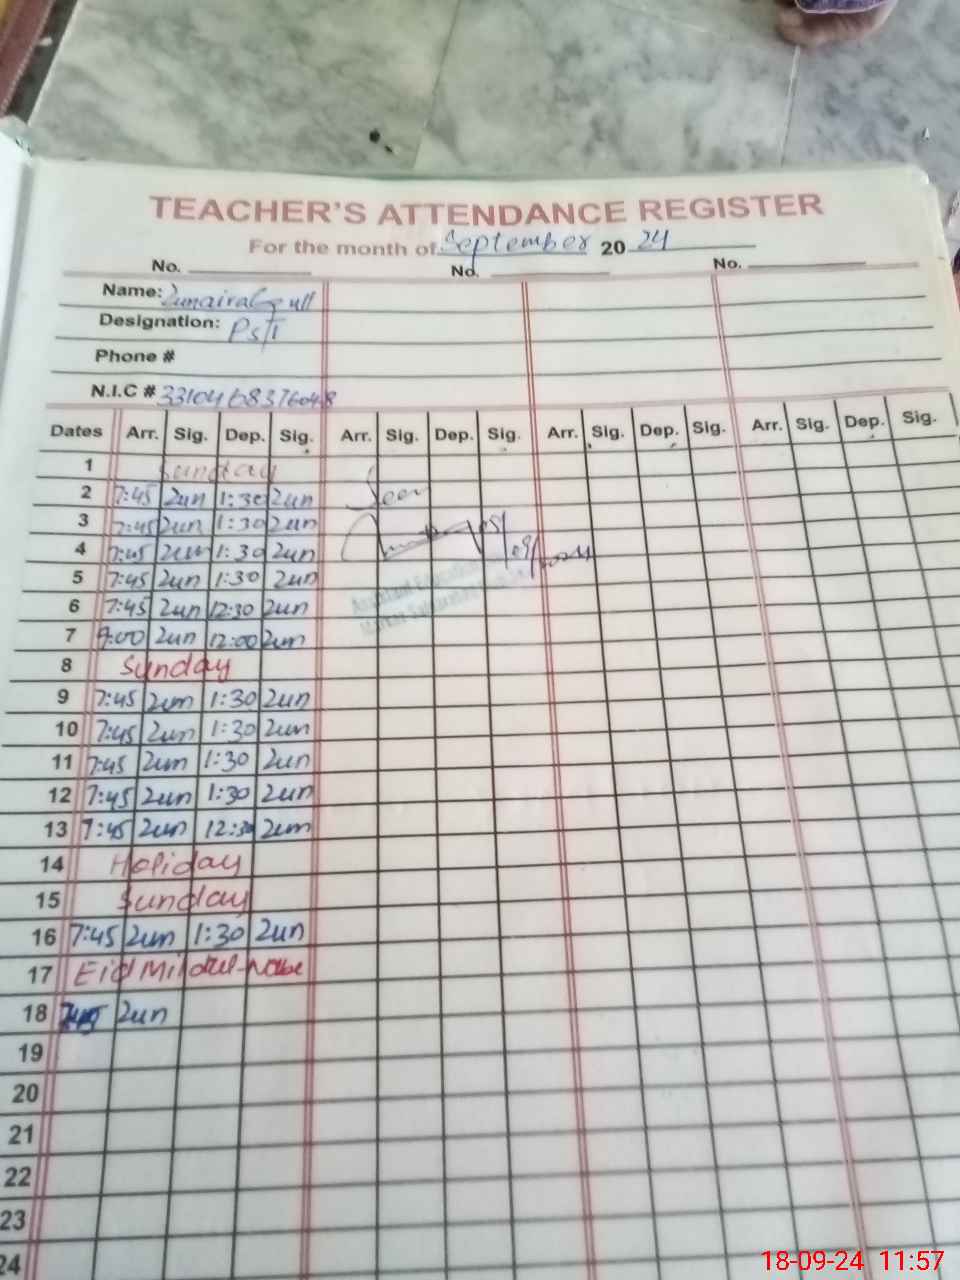 TEACHER'S ATTENDANCE REGISTER
For the month of September 20 24
No. No. No.
Name: Zunaira Gull
Designation: PST
Phone #
N.I.C # 3310468376048
Dates Arr. Sig. Dep. Sig. Arr. Sig. Dep. Sig. Arr. Sig. Dep. Sig. Arr. Sig. Dep. Sig.
1 Sunday
2 7:45 Zun 1:30 Zun Seen
3 7:45 Zun 1:30 Zun
4 7:45 Zun 1:30 Zun
5 7:45 Zun 1:30 Zun Assistant Education
6 7:45 Zun 12:30 Zun
7 9:00 Zun 12:00 Zun
8 Sunday
9 7:45 Zun 1:30 Zun
10 7:45 Zun 1:30 Zun
11 7:45 Zun 1:30 Zun
12 7:45 Zun 1:30 Zun
13 7:45 Zun 12:30 Zun
14 Holiday
15 Sunday
16 7:45 Zun 1:30 Zun
17 Eid Mi
18 7:45 Zun
19
20
21
22
23
24
18-09-24 11:57